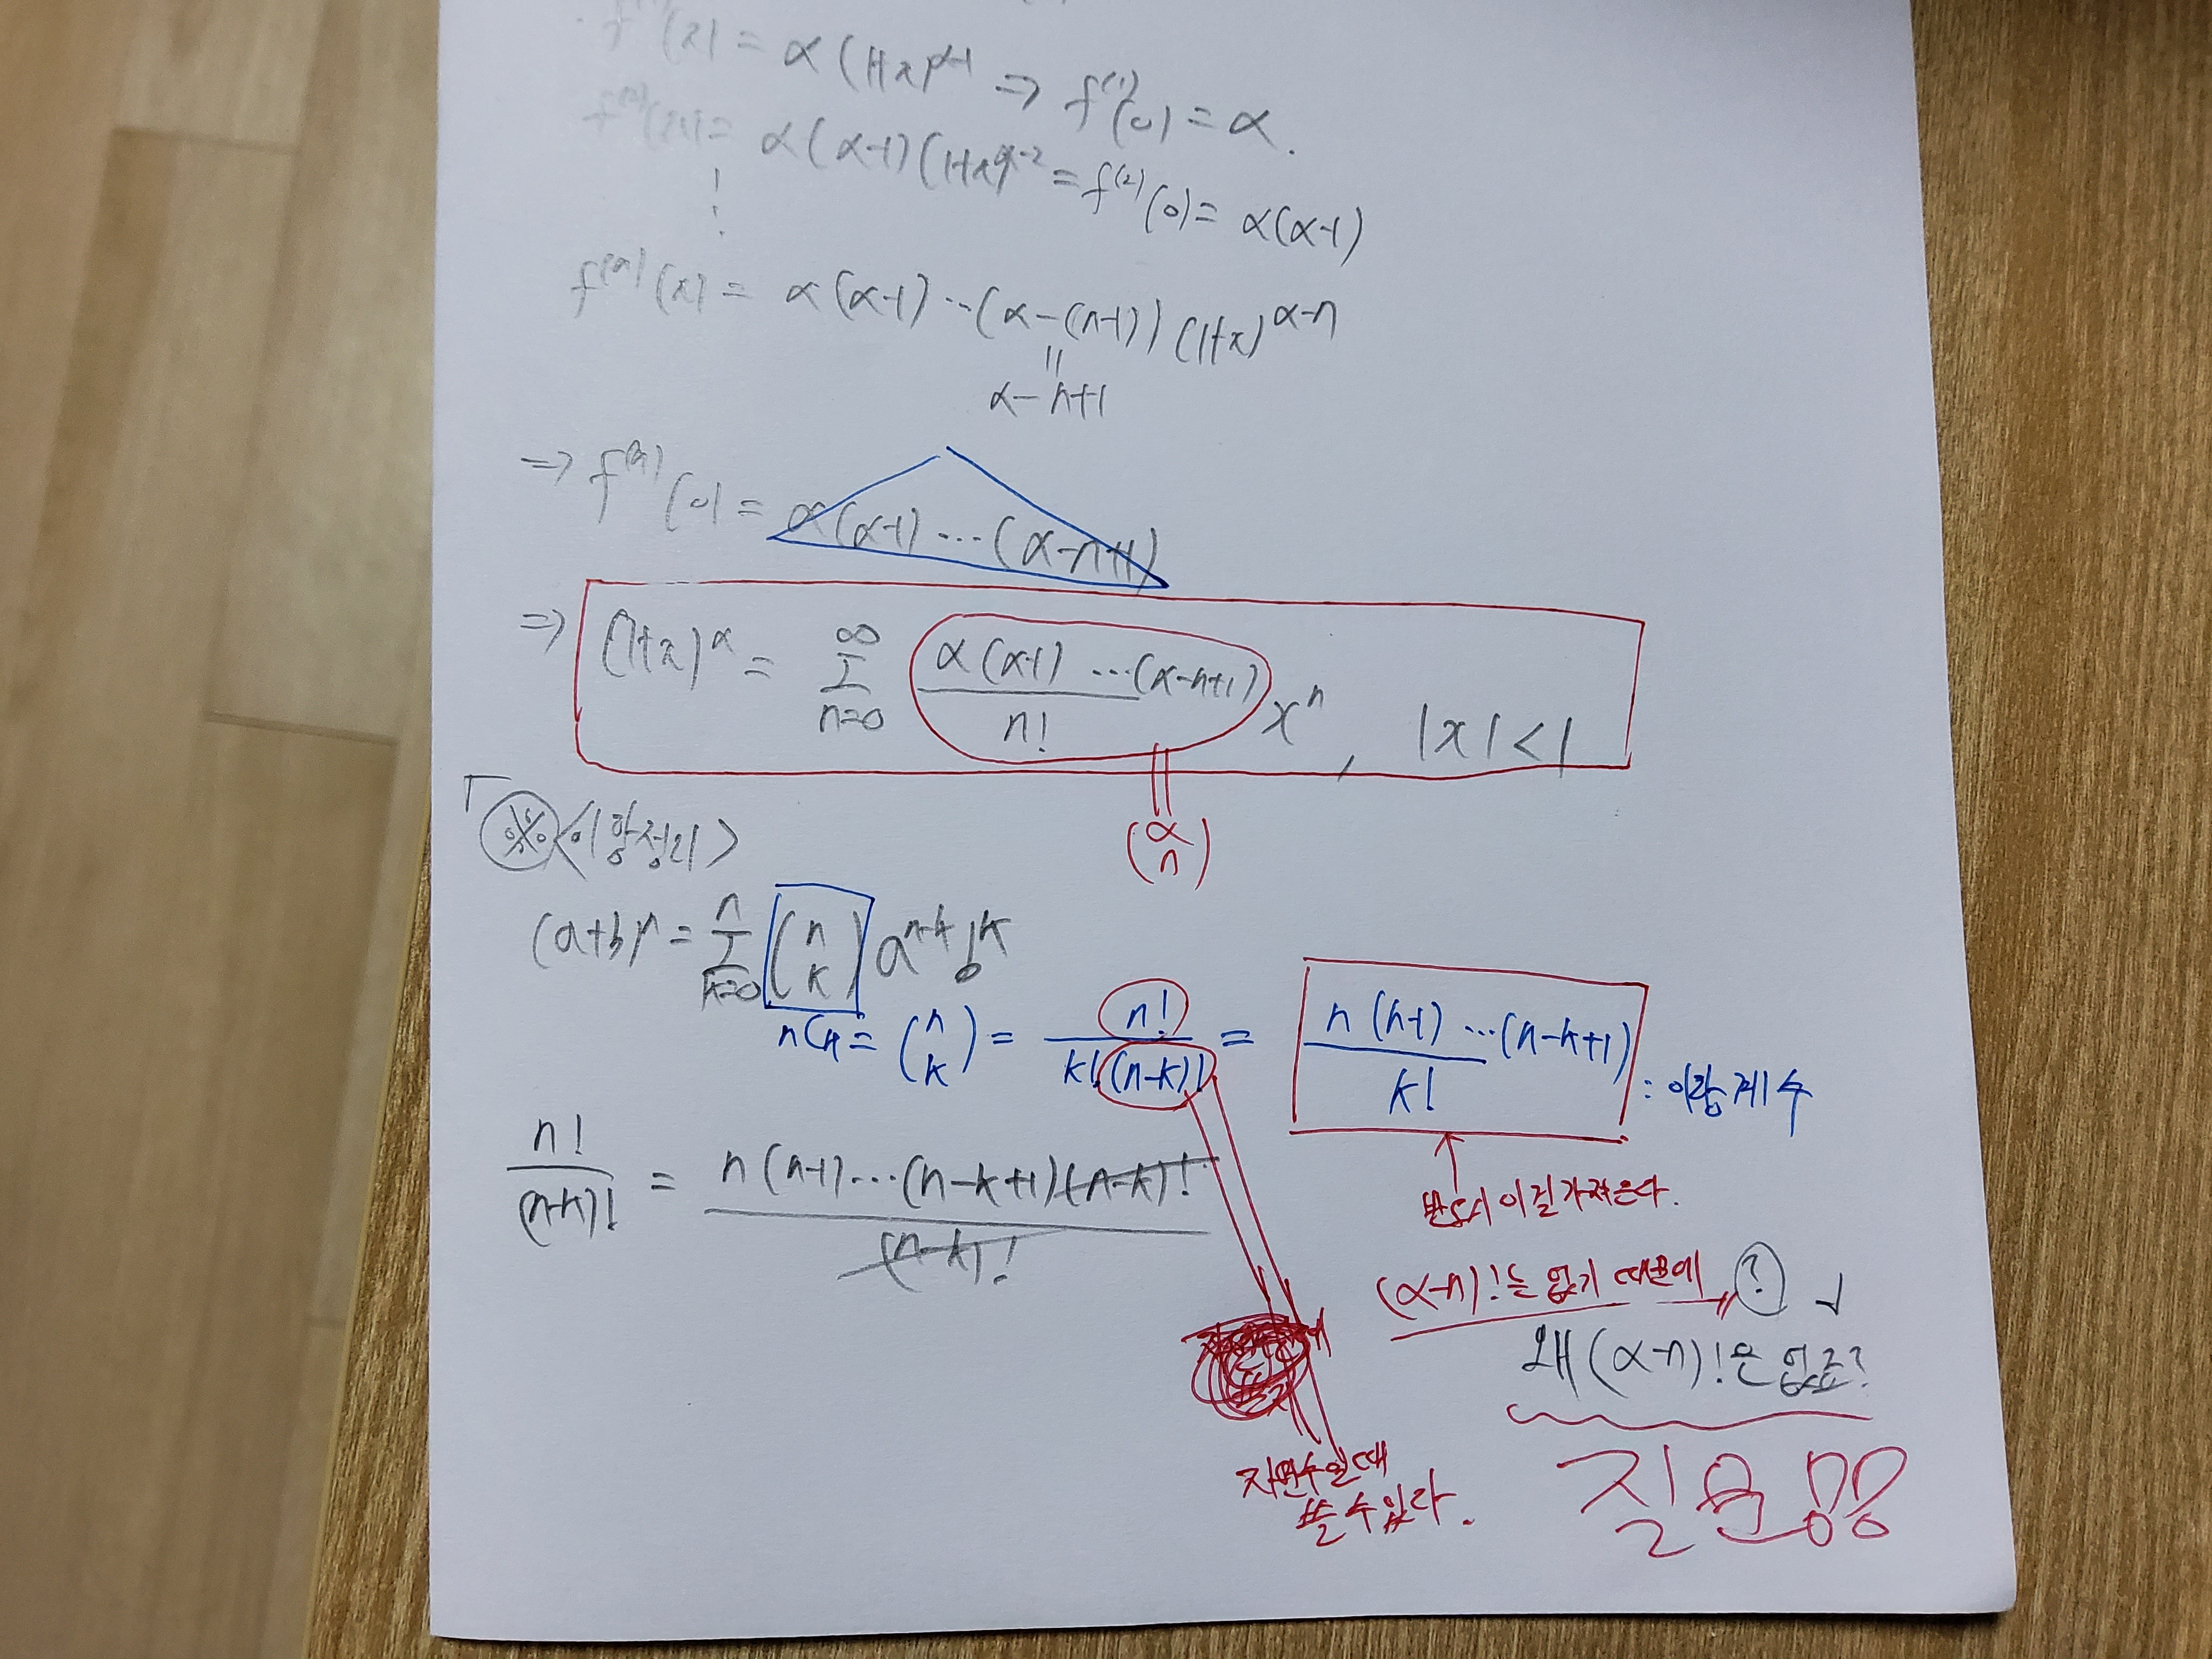 f⁽¹⁾(x) = α(1+x)^{α-1} ⇒ f⁽¹⁾(0) = α.
f⁽²⁾(x) = α(α-1)(1+x)^{α-2} = f⁽²⁾(0) = α(α-1)
⋮
f⁽ⁿ⁾(x) = α(α-1)⋯(α-(n-1))(1+x)^{α-n}
||
α-n+1
⇒ f⁽ⁿ⁾(0) = α(α-1)⋯(α-n+1)
⇒ (1+x)^α = Σ_{n=0}^{∞} α(α-1)⋯(α-n+1) / n! xⁿ, |x|<1
||
(α n)
「※ <이항정리>
(a+b)ⁿ = Σ_{k=0}^{n} (n k) a^{n-k} b^k
nCk = (n k) = n! / k!(n-k)! = n(n-1)⋯(n-k+1) / k! : 이항계수
n! / (n-k)! = n(n-1)⋯(n-k+1)(n-k)! / (n-k)!
반드시 이걸 가져온다.
(α-n)!는 없기 때문에 → ? 」
왜 (α-n)!은 없죠?
자연수일 때
쓸 수 있다.
질문